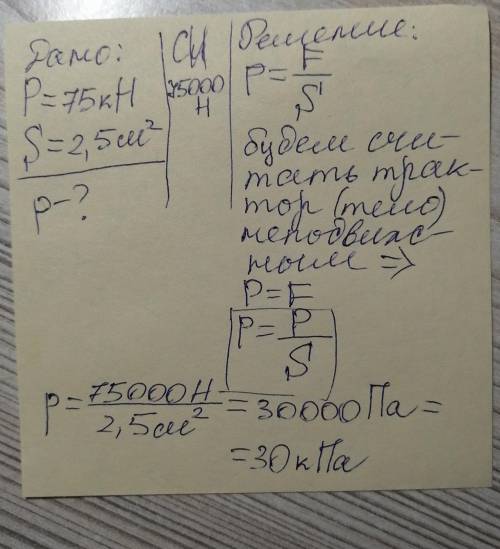 Дано:
P=75кН
S=2,5см²
p-?
СИ
75000
Н
Решение:
P=F/S
будем счи-
тать трак-
тор (тело)
неподвиж-
ным =>
P=F
P=P/S
p=75000Н/2,5см²=30000Па=
=30кПа